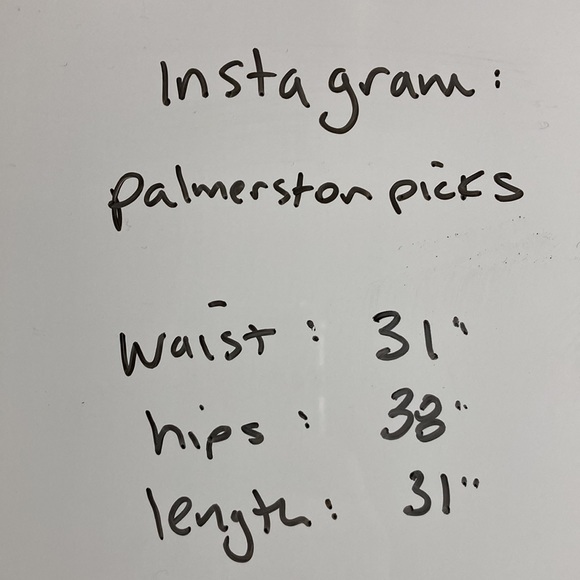 Instagram:
palmerston picks
waist: 31"
hips: 38"
length: 31"